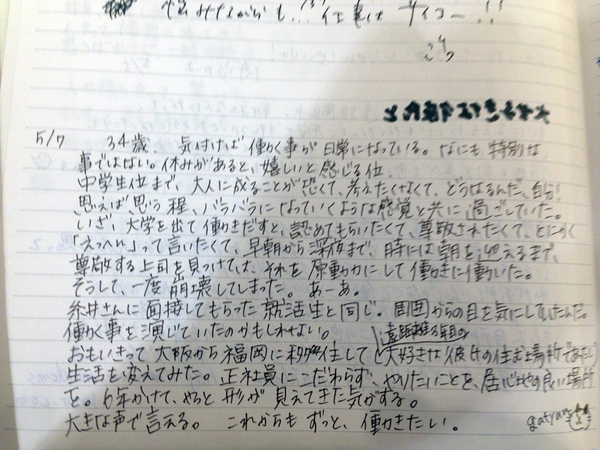 悩みながらも…仕事はサイコー!!
5/7 34歳 気付けば働く事が日常になっている。なにも特別な
事ではない。休みがあると、嬉しいと感じる位。
中学生位まで、大人に成ることが恐くて、考えたくなくて、どうなるんだ、自分!
思えば思う程、バラバラになっていくような感覚と共に過ごしていた。
いざ、大学を出て働きだすと、認めてもらいたくて、尊敬されたくて、とにかく
「えっへん」って言いたくて、早朝から深夜まで、時には朝を迎えるまで、
尊敬する上司を見つけては、それを原動力にして働きに働いた。
そうして、一度崩壊してしまった。あーあ。
糸井さんに面接してもらった就活生と同じ。周囲からの目を気にしていたんだ。
働く事を演じていたのかもしれない。
おもいきって大阪から福岡に移住して(遠距離5年目の大好きな彼氏の住む場所であり)
生活を変えてみた。正社員にこだわらず、やりたいことを、居心地の良い場所
を。6年かけて、やっと形が見えてきた気がする。
大きな声で言える。これからもずっと、働きたい。